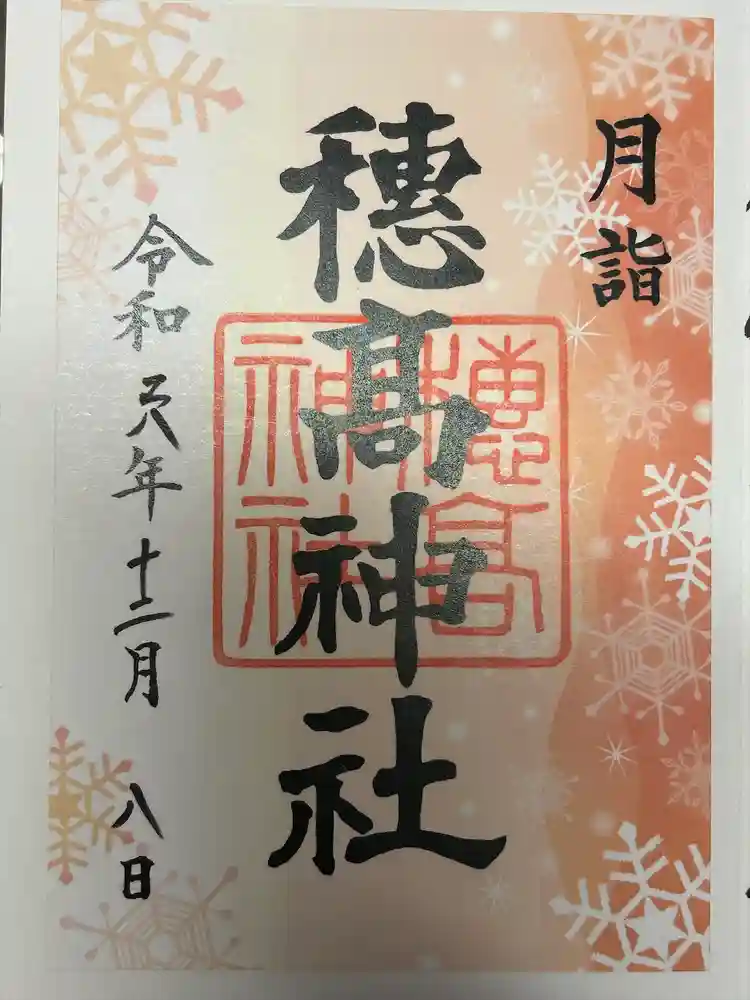 月詣
穗髙神社
穗高
神社
令和六年十二月八日